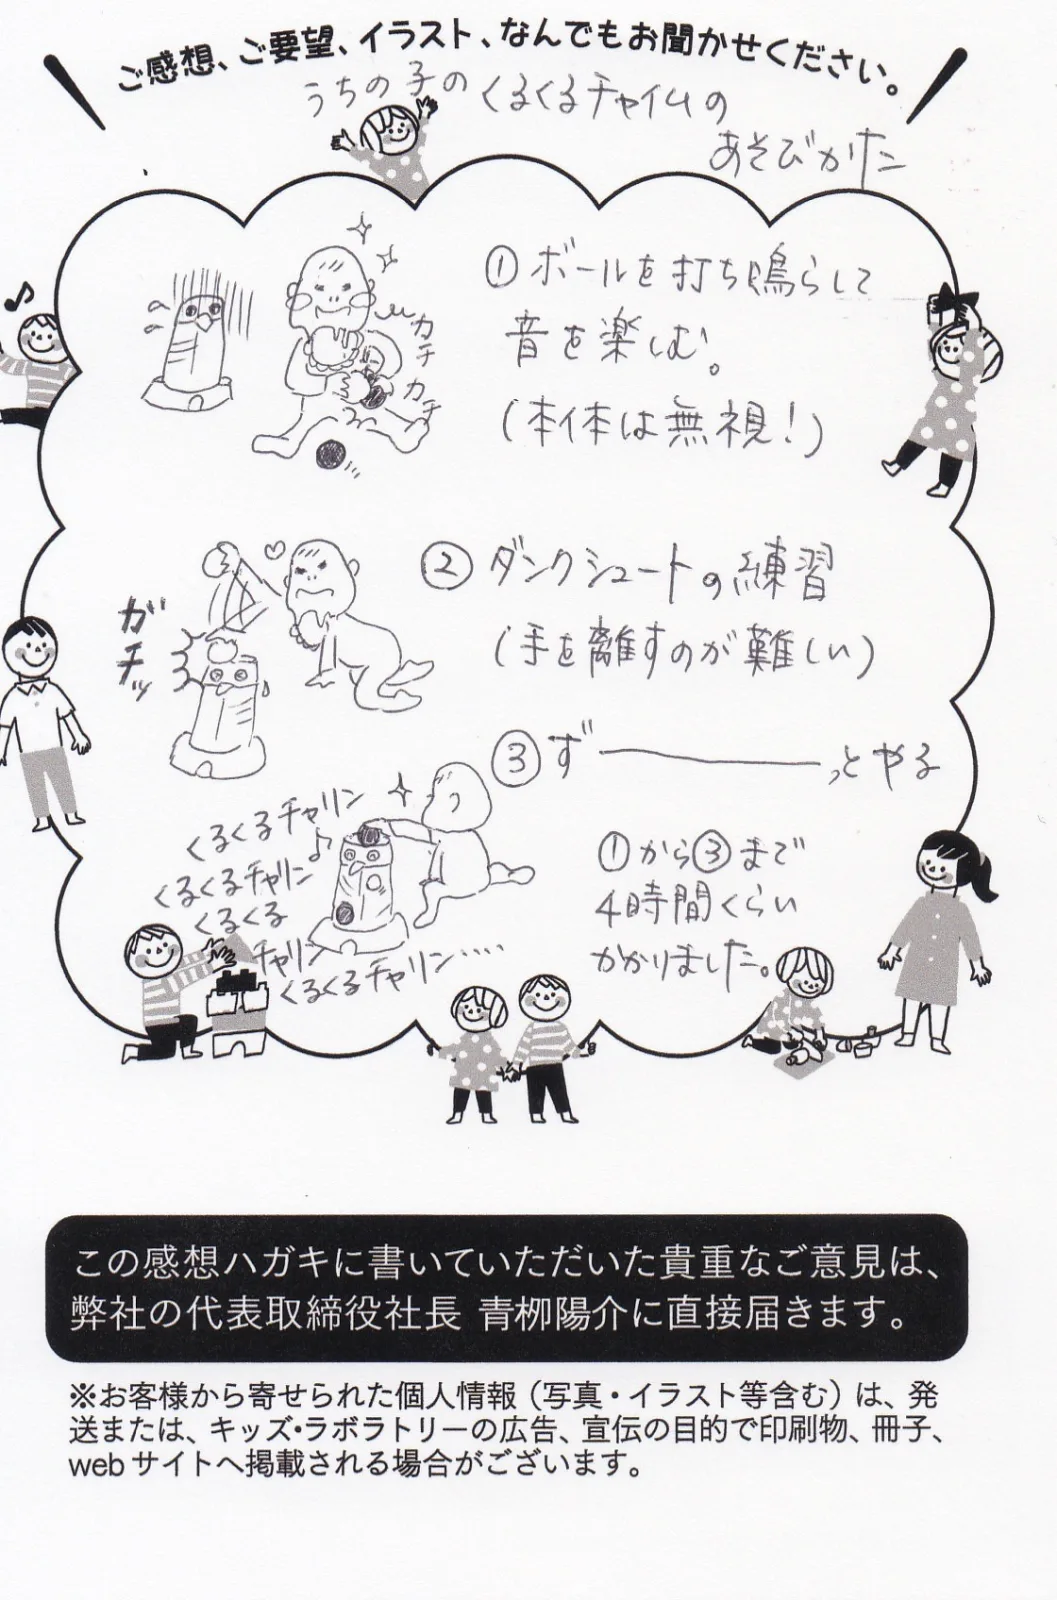 ご感想、ご要望、イラスト、なんでもお聞かせください。
うちの子のくるくるチャイムの
あそびかた
①ボールを打ち鳴らして
音を楽しむ。
(本体は無視!)
カチ
カチ
②ダンクシュートの練習
(手を離すのが難しい)
ガチッ
③ず――――っとやる
くるくるチャリン♪
くるくるチャリン
くるくる
チャリン
くるくるチャリン‥‥
①から③まで
4時間くらい
かかりました。
この感想ハガキに書いていただいた貴重なご意見は、
弊社の代表取締役社長 青栁陽介に直接届きます。
※お客様から寄せられた個人情報(写真・イラスト等含む)は、発
送または、キッズ・ラボラトリーの広告、宣伝の目的で印刷物、冊子、
webサイトへ掲載される場合がございます。